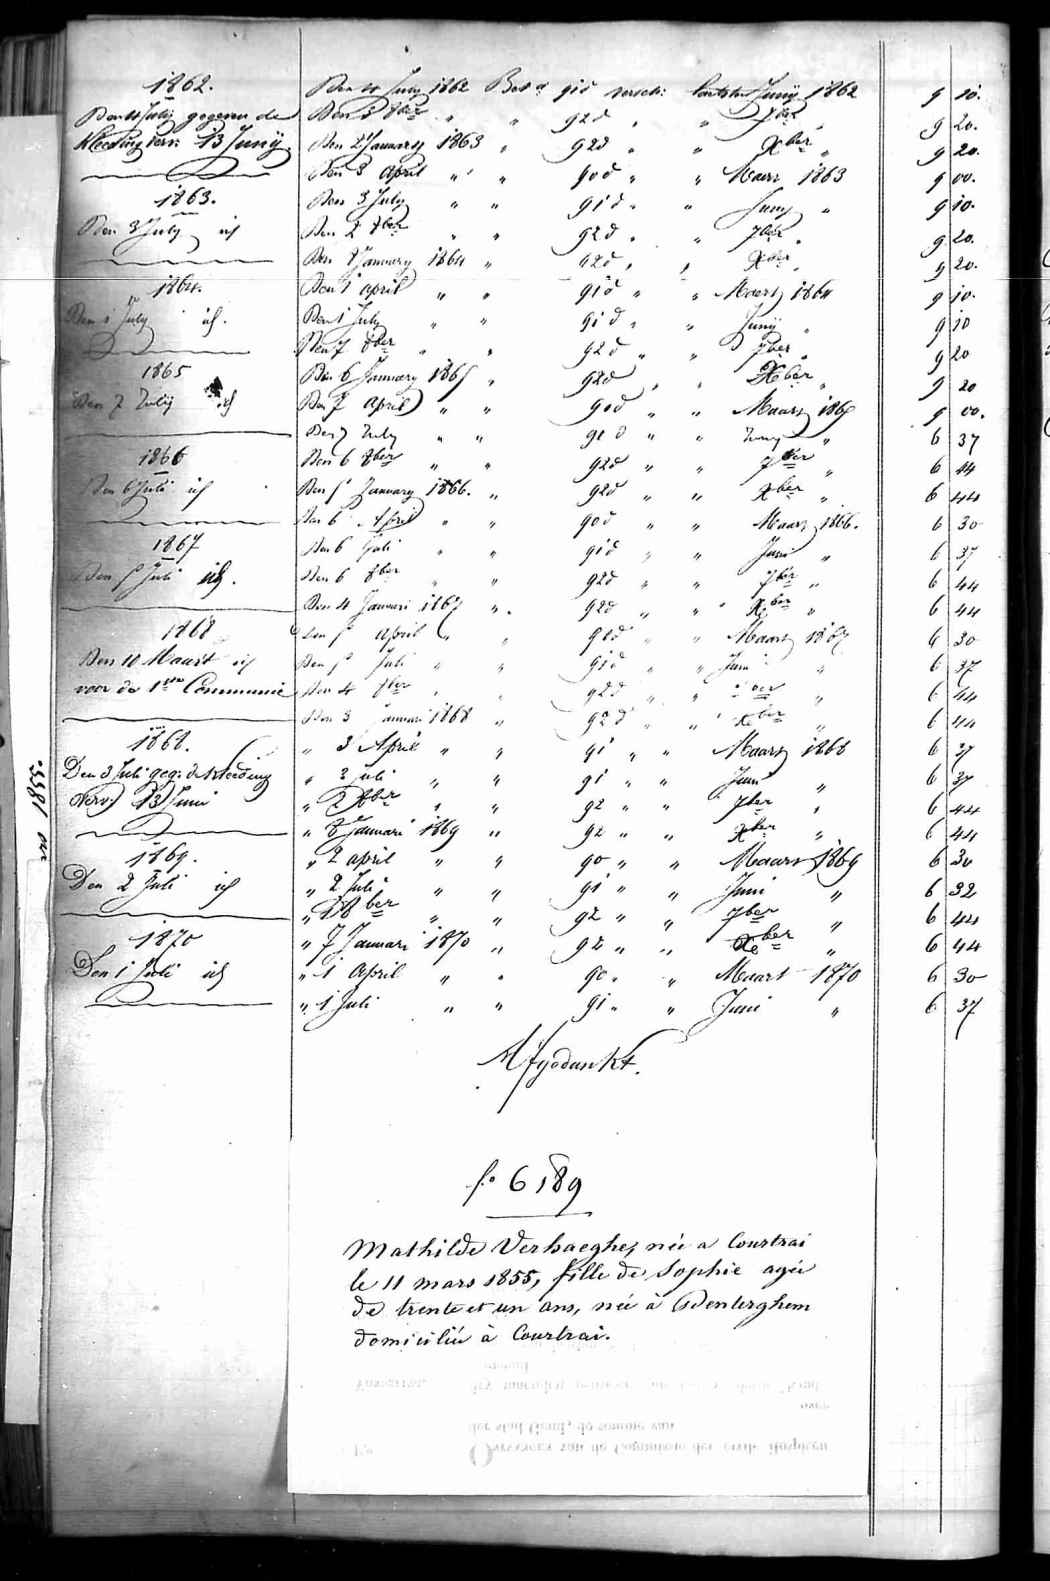 1862.
Den 4 July gegeven de
Kleeding verv: 13 Junÿ.
1863.
Den 3 July id
1864.
Den 1 July id.
1865
Den 7 Julÿ id
1866
Den 6 Juli id
1867
Den 5 Juli id.
1868
Den 10 Maart id
voor de 1ste Communie
1868.
Den 3 Juli geg: de Kleeding
Verv: 13 Juni
1869.
Den 2 Juli id
1870
Den 1 Juli id
Den 4 July 1862 Bet d 91 d versch: laatsten Junÿ 1862 9 10.
Den 3 8ber " " 92 d " " 7ber " 9 20.
Den 2 January 1863 " 92 d " " Xber " 9 20.
Den 3 April " " 90 d " " Maart 1863 9 00.
Den 3 July " " 91 d " " Juny " 9 10.
Den 2 8ber " " 92 d " " 7ber " 9 20.
Den 8 January 1864 " 92 d " " Xber " 9 20.
Den 1 april " " 91 d " " Maart 1864 9 10.
Den 1 July " " 91 d " " Junÿ " 9 10
Den 7 8ber " " 92 d " " 7ber " 9 20
Den 6 January 1865 " 92 d " " Xber " 9 20
Den 7 April " " 90 d " " Maart 1865 9 00.
Den 7 July " " 91 d " " Juny " 6 37
Den 6 8ber " " 92 d " " 7ber " 6 44
Den 5 January 1866. " 92 d " " Xber " 6 44
Den 6 April " " 90 d " " Maart 1866. 6 30
Den 6 Juli " " 91 d " " Juni " 6 37
Den 6 8ber " " 92 d " " 7ber " 6 44
Den 4 Januari 1867 " 92 d " " Xber " 6 44
Den 5 April " " 90 d " " Maart 1867 6 30
Den 5 Juli " " 91 d " " Juni " 6 37
Den 4 8ber " " 92 d " " 7ber " 6 44
Den 3 Januari 1868 " 92 d " " Xber " 6 44
" 3 April " " 91 " " Maart 1868 6 37
" 3 Juli " " 91 " " Juni " 6 37
" 2 8ber " " 92 " " 7ber " 6 44
" 8 Januari 1869 " 92 " " Xber " 6 44
" 2 april " " 90 " " Maart 1869 6 30
" 2 Juli " " 91 " " Juni " 6 32
" 1 8ber " " 92 " " 7ber " 6 44
" 7 Januari 1870 " 92 " " Xber " 6 44
" 1 April " " 90 " " Maart 1870 6 30
" 1 Juli " " 91 " " Juni " 6 37
Afgedankt.
fo 6189
Mathilde Verhaeghe, née a Courtrai
le 11 mars 1855, fille de Sophie agée
de trente et un ans, née à Odenterghem
domiciliée à Courtrai.